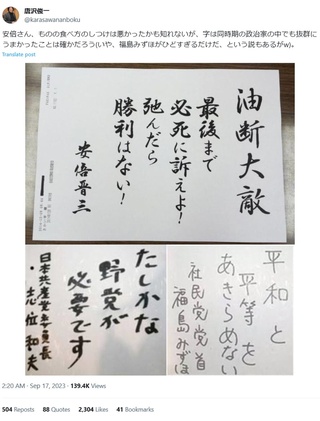 唐沢俊一
@karasawananboku
安倍さん、ものの食べ方のしつけは悪かったかも知れないが、字は同時期の政治家の中でも抜群に
うまかったことは確かだろう(いや、福島みずほがひどすぎるだけだ、という説もあるがw)。
Translate post
油断大敵
最後まで
必死に訴えよ!
弛んだら
勝利はない!
安倍晋三
たしかな
野党が
必要です
日本共産党委員長
・志位和夫
平和と
平等を
あきらめない
社民党党首
福島みずほ
2:20 AM · Sep 17, 2023 · 139.4K Views
504 Reposts 88 Quotes 2,304 Likes 41 Bookmarks